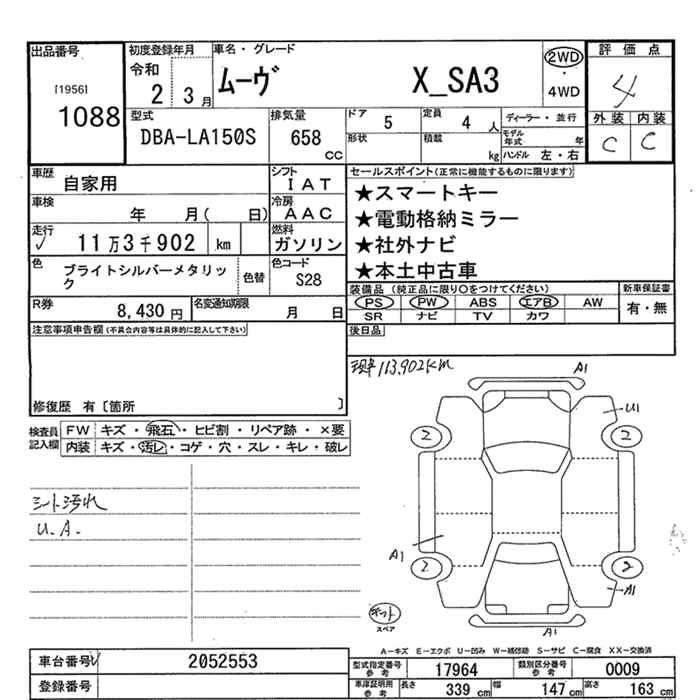 出品番号
[1956]
1088
初度登録年月
令和
2 3月
車名・グレード
ムーヴ X_SA3
2WD
・
4WD
評価点
4
外装 内装
C C
型式
DBA-LA150S
排気量
658
CC
ドア 5
定員 4 人
形状
積載 kg
ディーラー・並行
モデル年式 年
ハンドル 左・右
車歴 自家用
シフト
IAT
車検 年 月( 日)
冷房
AAC
走行
✓ 11万3千902 km
燃料
ガソリン
色 ブライトシルバーメタリック
色替
色コード
S28
R券 8,430円
名変通知期限 月 日
セールスポイント(正常に機能するものに限ります)
★スマートキー
★電動格納ミラー
★社外ナビ
★本土中古車
装備品 (純正品に限り○をつけてください)
PS PW ABS エアB AW
SR ナビ TV カワ
新車保証書
有・無
後日品
注意事項申告欄(不具合内容等は具体的に記入して下さい)
修復歴 有〔箇所 〕
現車113,902km
検査員記入欄
FW キズ・飛石・ヒビ割・リペア跡・×要
内装 キズ・汚レ・コゲ・穴・スレ・キレ・破レ
シート汚れ
U.A.
A1
U1
2
2
A1
2
2
A1
A1
キット
スペア
A-キズ E-エクボ U-凹み W-補修跡 S-サビ C-腐食 XX-交換済
車台番号 2052553
登録番号
型式指定番号参考 17964
類別区分番号参考 0009
車庫証明用参考 長さ 339 cm 幅 147 cm 高さ 163 cm